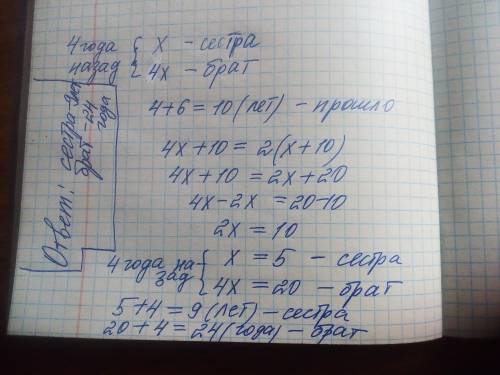 4 года { x – сестра
назад { 4x – брат
4+6=10 (лет) – прошло
4x+10=2(x+10)
4x+10=2x+20
4x-2x=20-10
2x=10
4 года на- { x=5 – сестра
зад { 4x=20 – брат
5+4=9 (лет) – сестра
20+4=24 (года) – брат
Ответ: сестра-9лет
брат-24
года